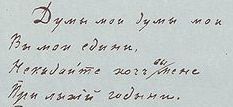 Думы мои думы мои
Вы мои едини,
Некыдайте хочъ вы мене
При лыхій годыни.